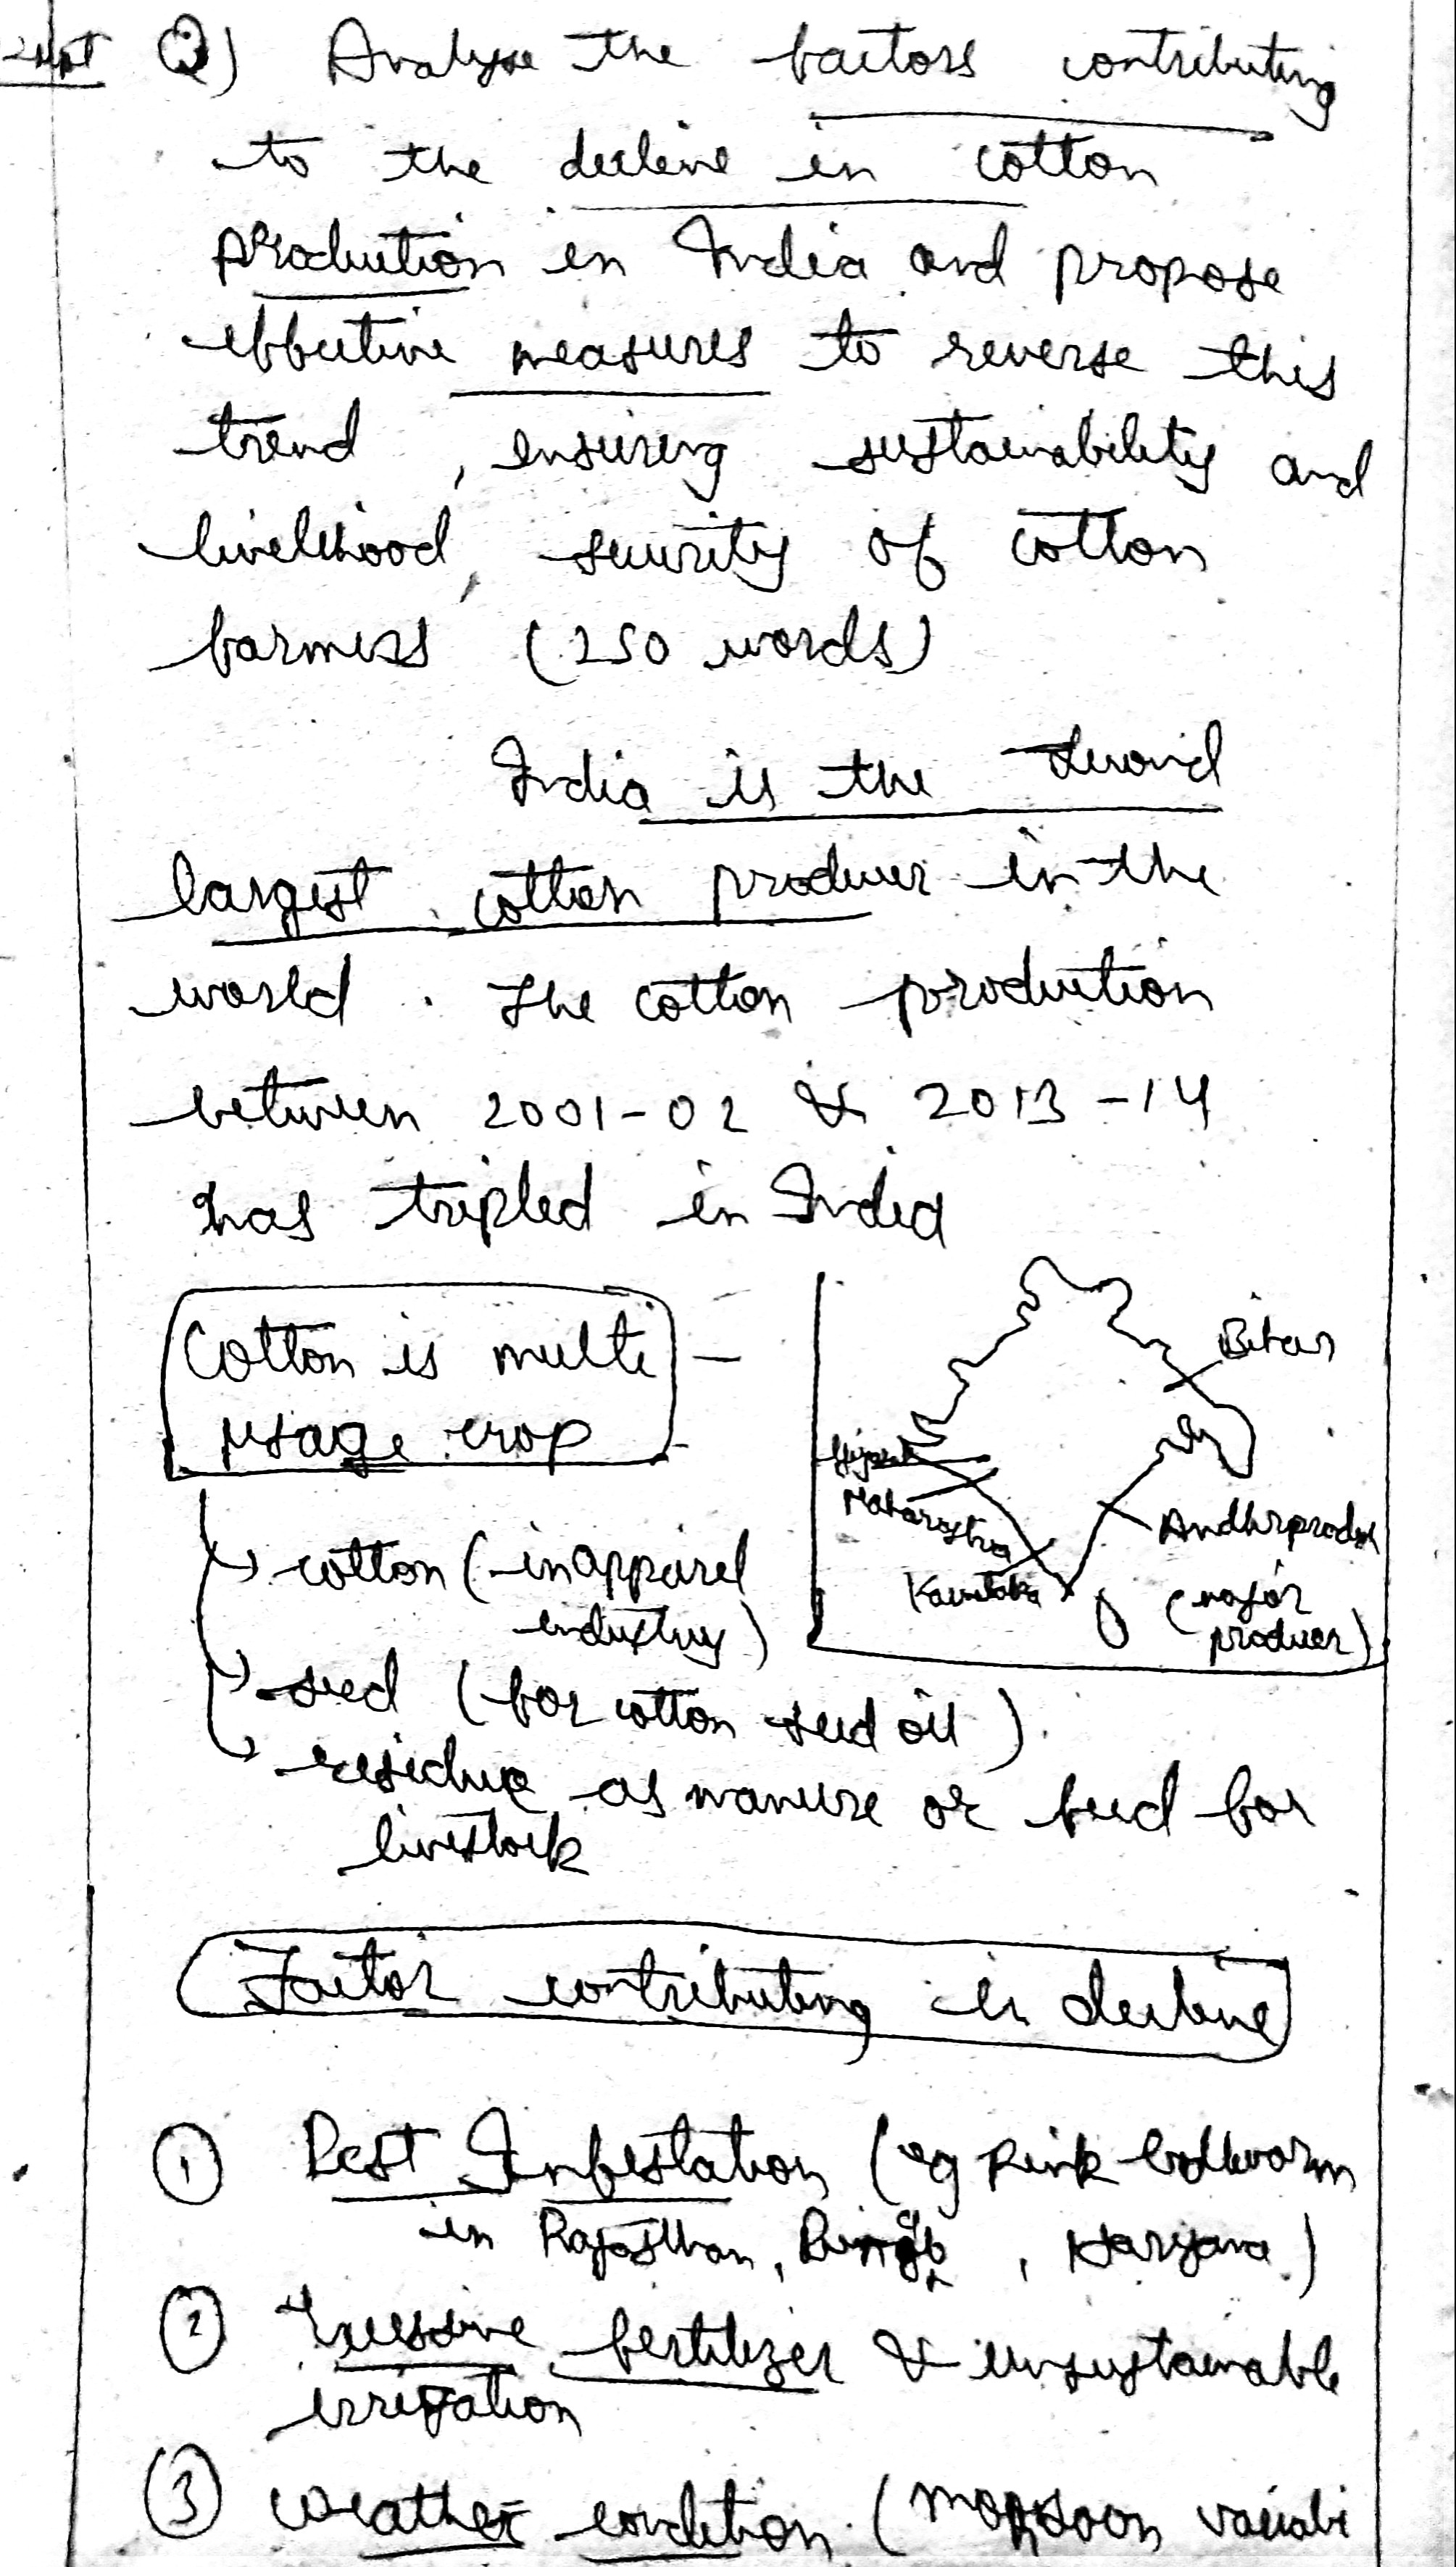 Q) Analyse the factors contributing
to the decline in cotton
production in India and propose
effective measures to reverse this
trend, ensuring sustainability and
livelihood, security of cotton
farmers (250 words)
India is the second
largest cotton producer in the
world. The cotton production
between 2001-02 & 2013-14
has tripled in India
Cotton is multi
usage crop
cotton (in apparel
industry)
seed (for cotton seed oil)
residue as manure or feed for
livestock
Bihar
Gujarat
Maharastra
Karnataka
Andhrpradsh
(major
producer)
Factor contributing in decline
1 Pest Infestation (eg Pink bollworm
in Rajasthan, Punjab, Haryana)
2 Excessive fertilizer & unsustainable
irrigation
3 weather condition (monsoon variabi